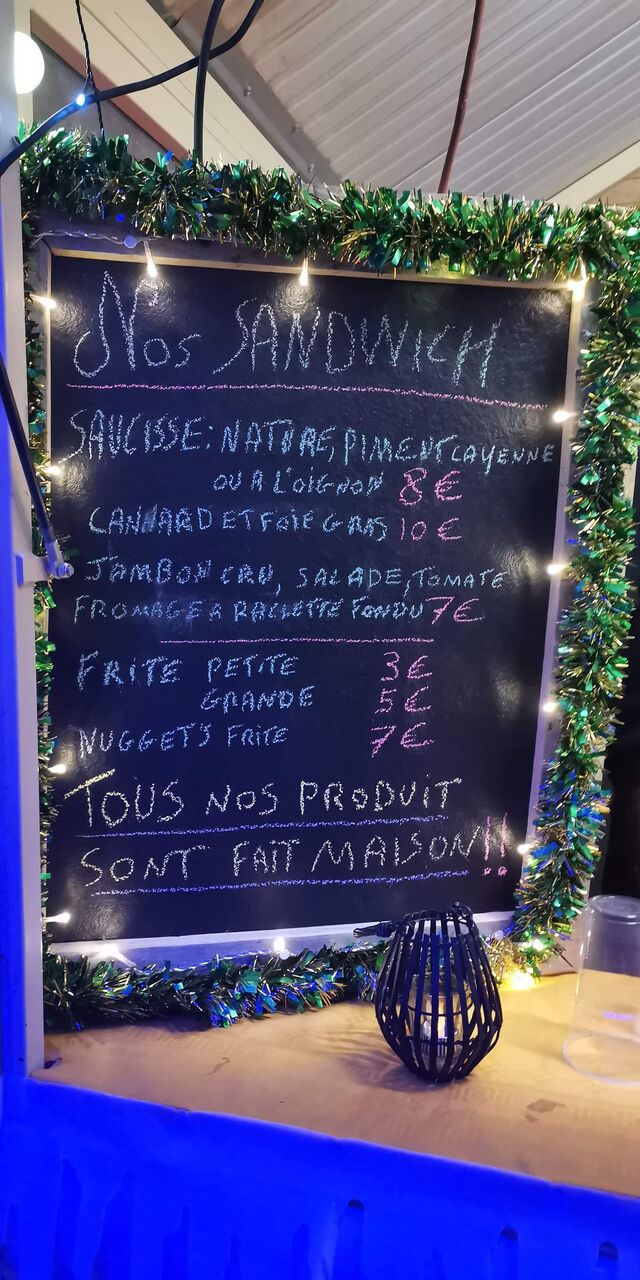 Nos SANDWICH
SAUCISSE: NATURE, PIMENT CAYENNE
OU A L'OIGNON 8€
CANNARD ET FOIE GRAS 10€
JAMBON CRU, SALADE, TOMATE
FROMAGE A RACLETTE FONDU 7€
FRITE PETITE 3€
GRANDE 5€
NUGGETS FRITE 7€
TOUS NOS PRODUIT
SONT FAIT MAISON!!